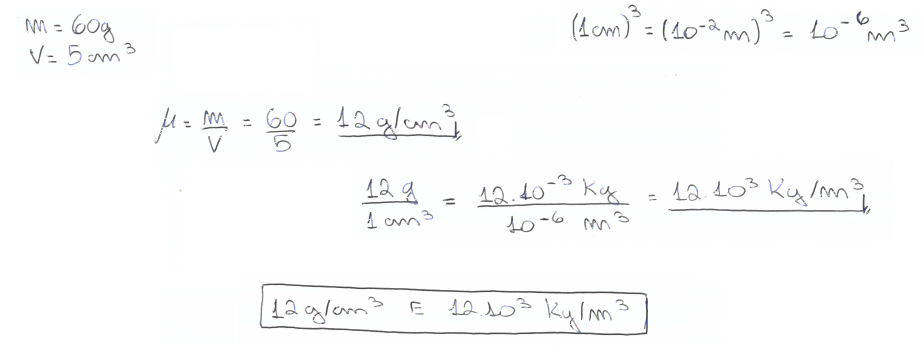 m = 60g
V = 5 cm³
(1cm)³ = (10⁻² m)³ = 10⁻⁶ m³
μ = m/V = 60/5 = 12 g/cm³
12 g/1 cm³ = 12.10⁻³ Kg/10⁻⁶ m³ = 12.10³ Kg/m³
12 g/cm³ E 12.10³ Kg/m³